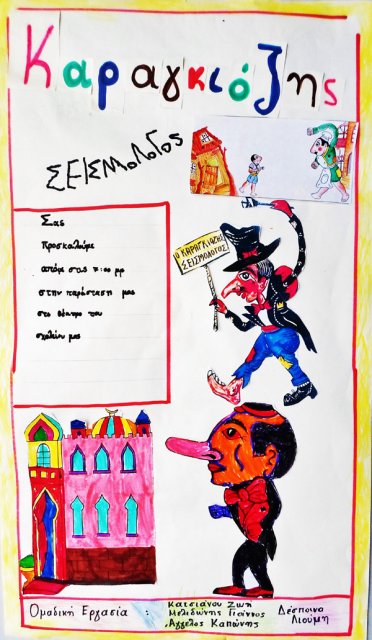 Καραγκιόζης
ΣΕΙΣΜΟΛΟΓΟΣ
Σας
προσκαλούμε
απόψε στις 7:00 μμ
στην παράσταση μας
στο θέατρο του
σχολείου μας
Ο ΚΑΡΑΓΚΙΟΖΗΣ
ΣΕΙΣΜΟΛΟΓΟΣ
Ομαδική Εργασία :
Κατσιάνου Ζωή
Μελιδώνης Γιάννος
Άγγελος Καπώνης
Δέσποινα
Λιούμη